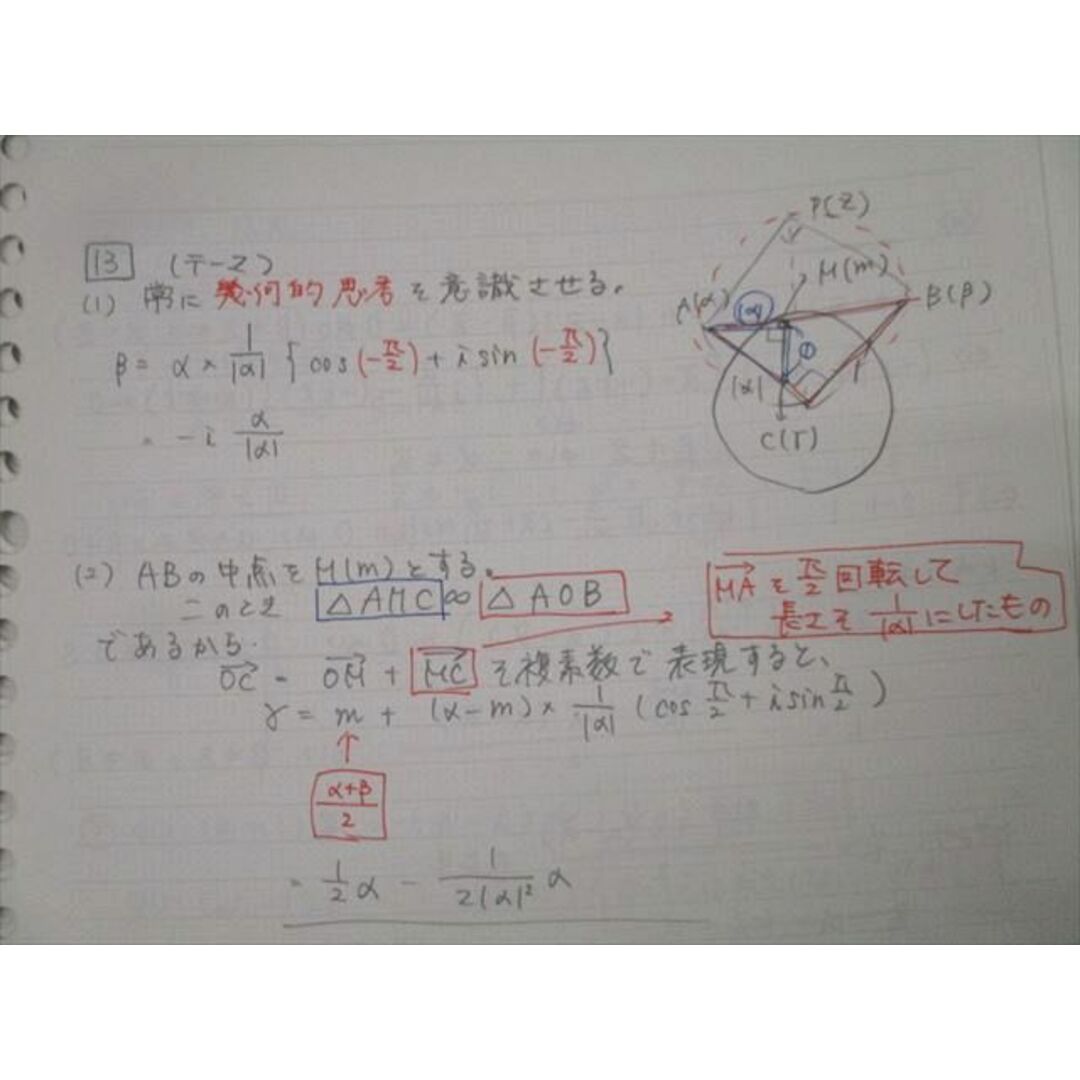 13 (テーマ)
(1) 常に幾何的思考を意識させる。
β = α × 1/|α| {cos(-π/2) + i sin(-π/2)}
= -i α/|α|
P(z)
M(m)
A(α)
|α|
B(β)
①
|α|
1
C(γ)
(2) ABの中点をM(m)とする。
このとき △AMC∽△AOB
であるから.
→MAをπ/2回転して
長さを1/|α|にしたもの
→OC = →OM + →MC を複素数で表現すると、
γ = m + (α-m) × 1/|α| (cos π/2 + i sin π/2)
↑
α+β/2
= 1/2 α - 1/2|α|² α